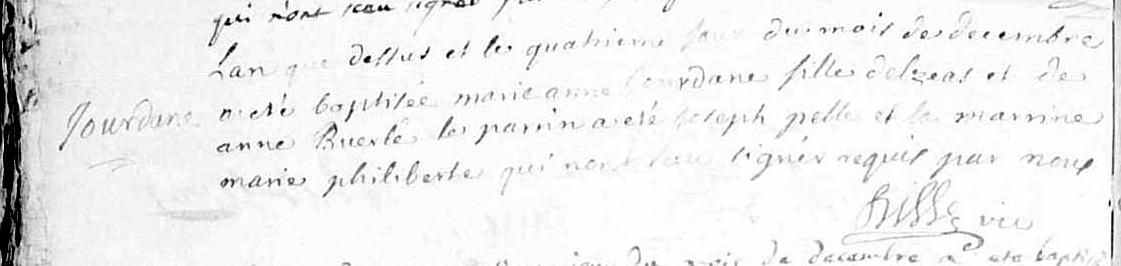 qui n'ont sceu signer
Lan que dessus et le quatrieme jour du mois de decembre
Jourdane a eté baptisée marie anne Jourdane fille delzeas et de
anne Buerle le parrin a eté joseph pelle et la marrine
marie philiberte qui nont sceu signer requis par nous
vic
du mois de decembre a eté baptisé